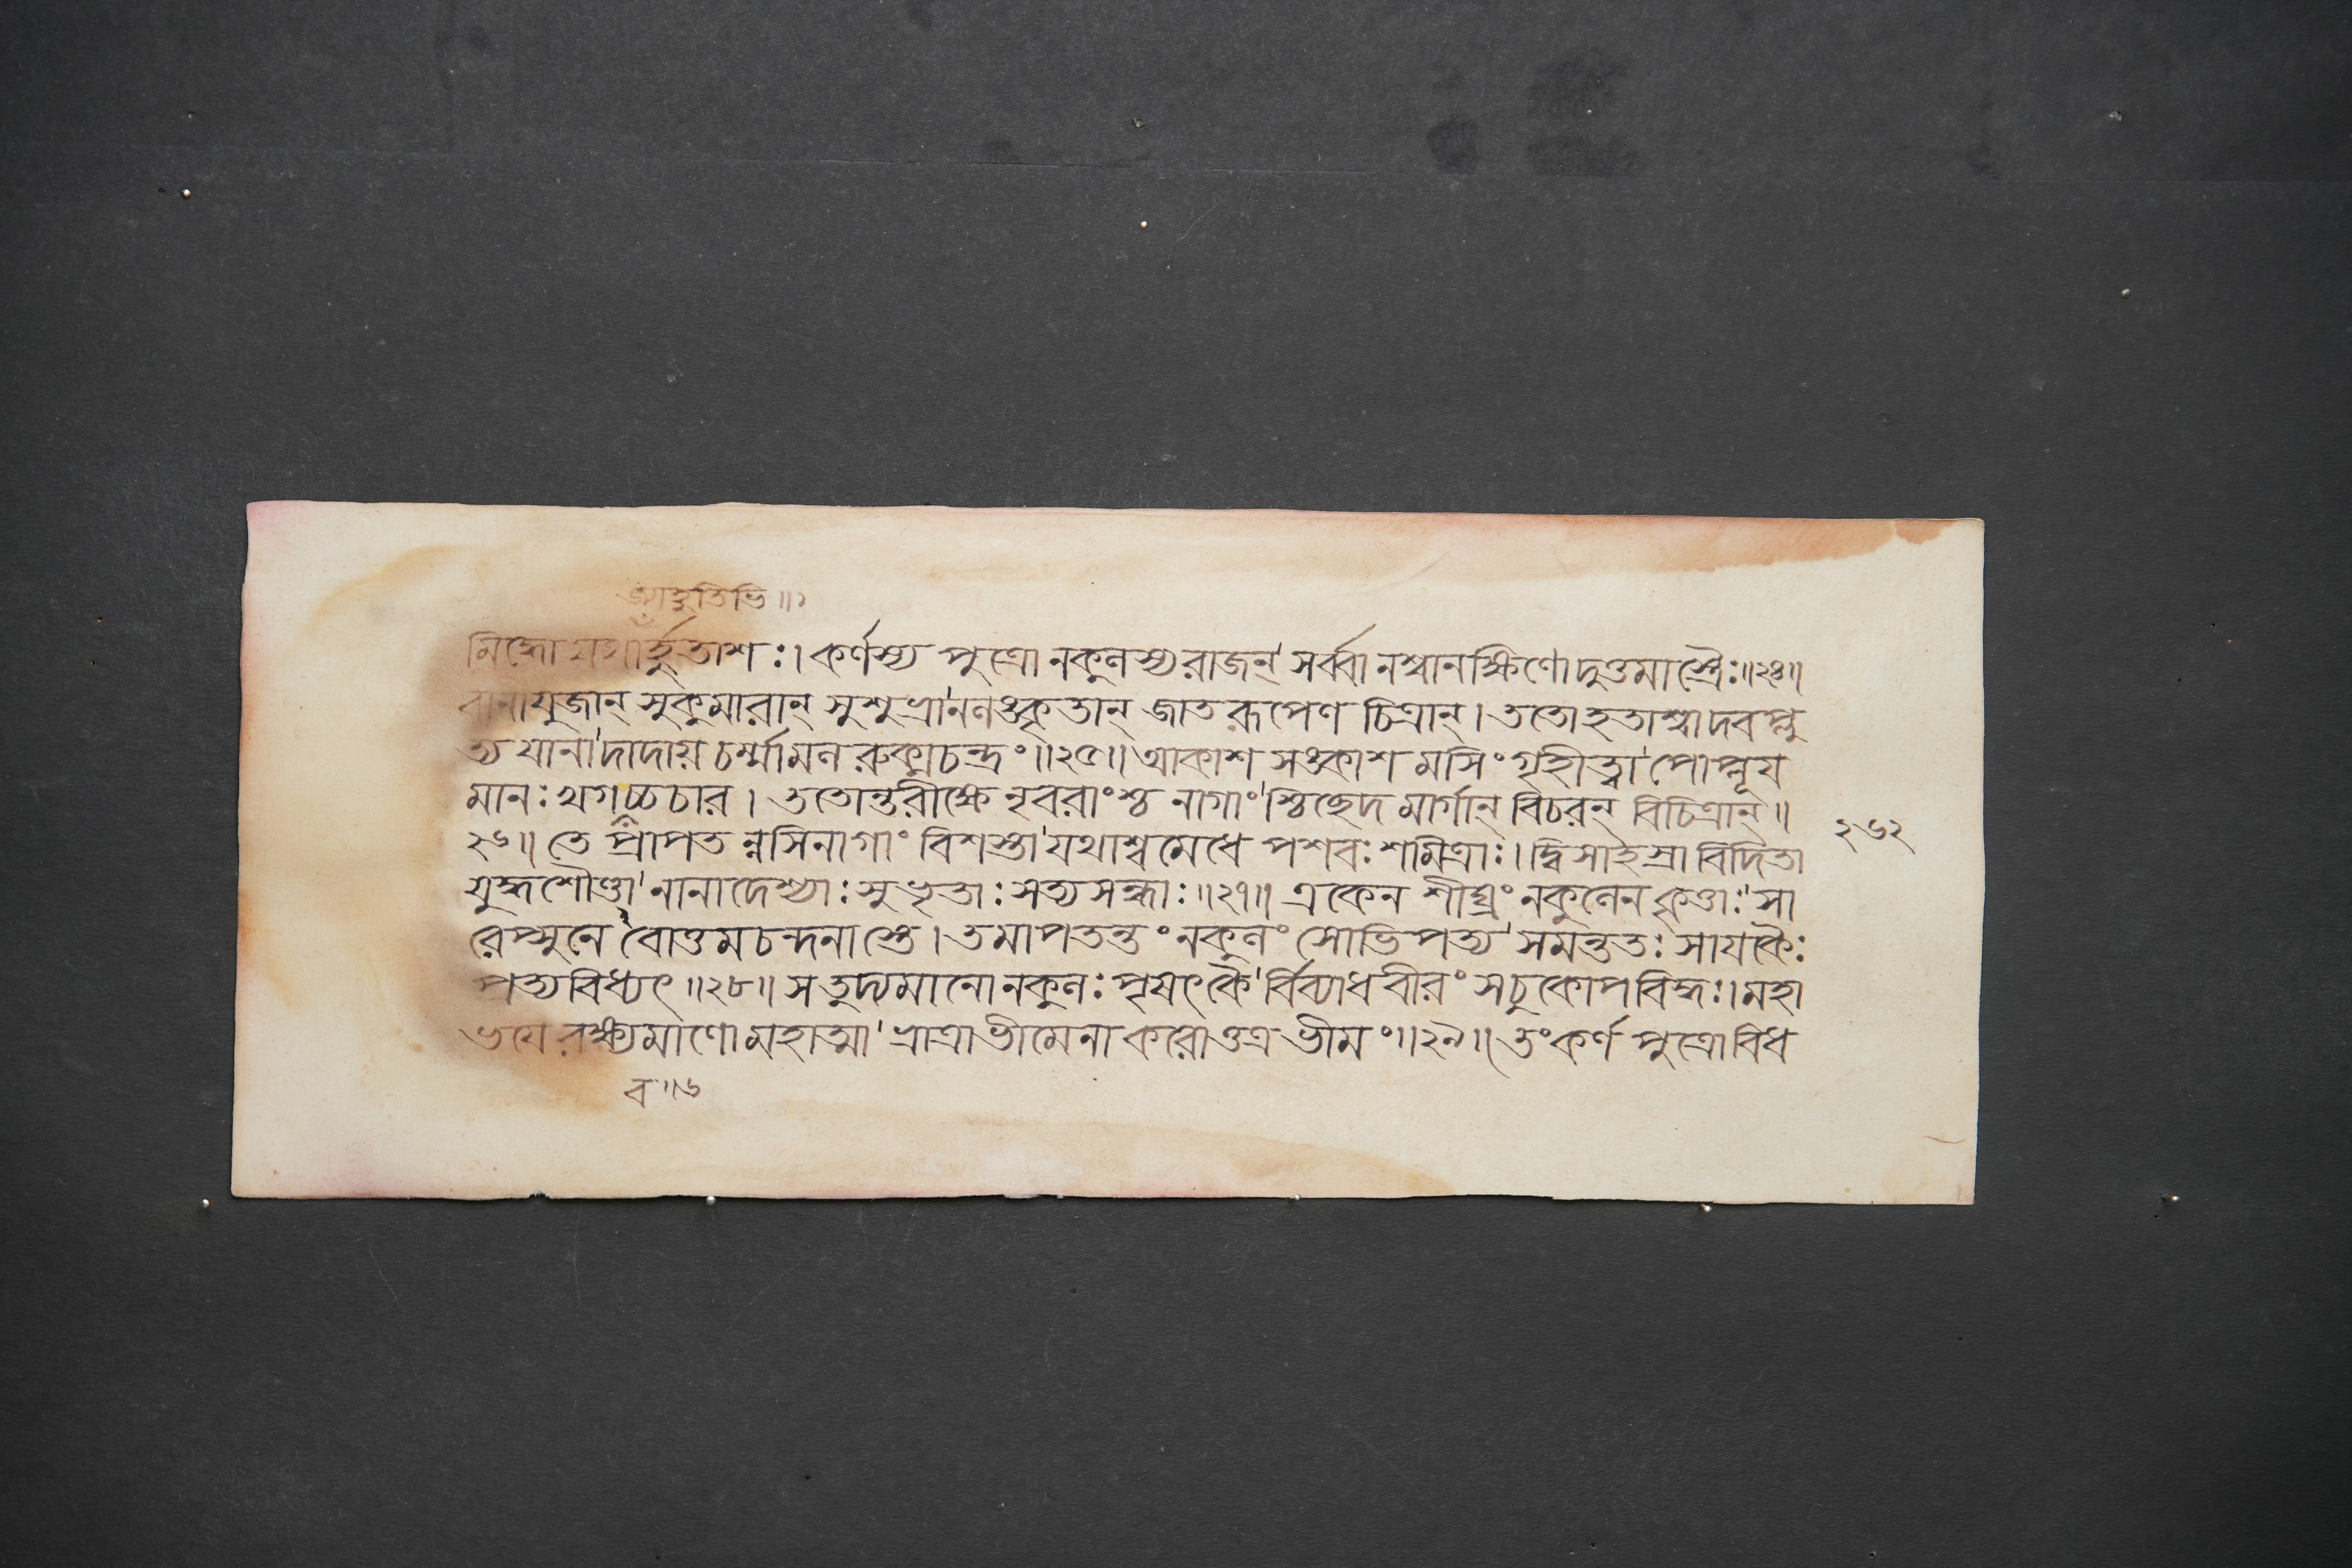 আহুতিভি॥১
মিদ্ধো যথা র্হুতাশঃ। কর্ণস্য পুত্রো নকুলস্য রাজন্' সর্ব্বানশ্বানক্ষিণোদুত্তমাস্ত্রৈঃ॥২৪॥
বানাযুজান্ সুকুমারান্ সুশুভ্রা'নলঙ্কৃতান্ জাতরূপেণ চিত্রান্। ততোহতাশ্বাদবপ্লু
ত্য যানা'দাদায় চর্ম্মামল রুক্মচন্দ্রং॥২৫॥ আকাশ সঙ্কাশ মসিং গৃহীত্বা'পোপ্লূয
মানঃ খগচ্চচার। ততোন্তরীক্ষে নৃবরাংশ্চ নাগাং'শ্চিছেদ মার্গান্ বিচরন্ বিচিত্রান্॥
২৬॥ তে প্রাপত ন্নসিনাগাং বিশস্তা'যথাশ্বমেধে পশবঃ শমিত্রাঃ। দ্বিসাহস্রা বিদিতা
যুদ্ধশৌণ্ডা'নানাদেশ্যাঃ সুভৃতাঃ সত্যসন্ধাঃ॥২৭॥ একেন শীঘ্রং নকুলেন কৃত্তাঃ'সা
রেপ্সুনে বোত্তমচন্দনাস্তে। তমাপতন্তং নকুলং সোভিপত্য'সমন্ততঃ সাযকৈঃ
প্রত্যবিধ্যৎ॥২৮॥ স তুদ্যমানো নকুলঃ পৃষৎকৈ'র্বিব্যাধ বীরং সচুকোপ বিদ্ধঃ। মহা
ভযে রক্ষ্যমাণো মহাত্মা'ভ্রাত্রা ভীমেনা করোত্তত্র ভীমং॥২৯॥ তং কর্ণ পুত্রো বিধ
ব॥৬
২৬২